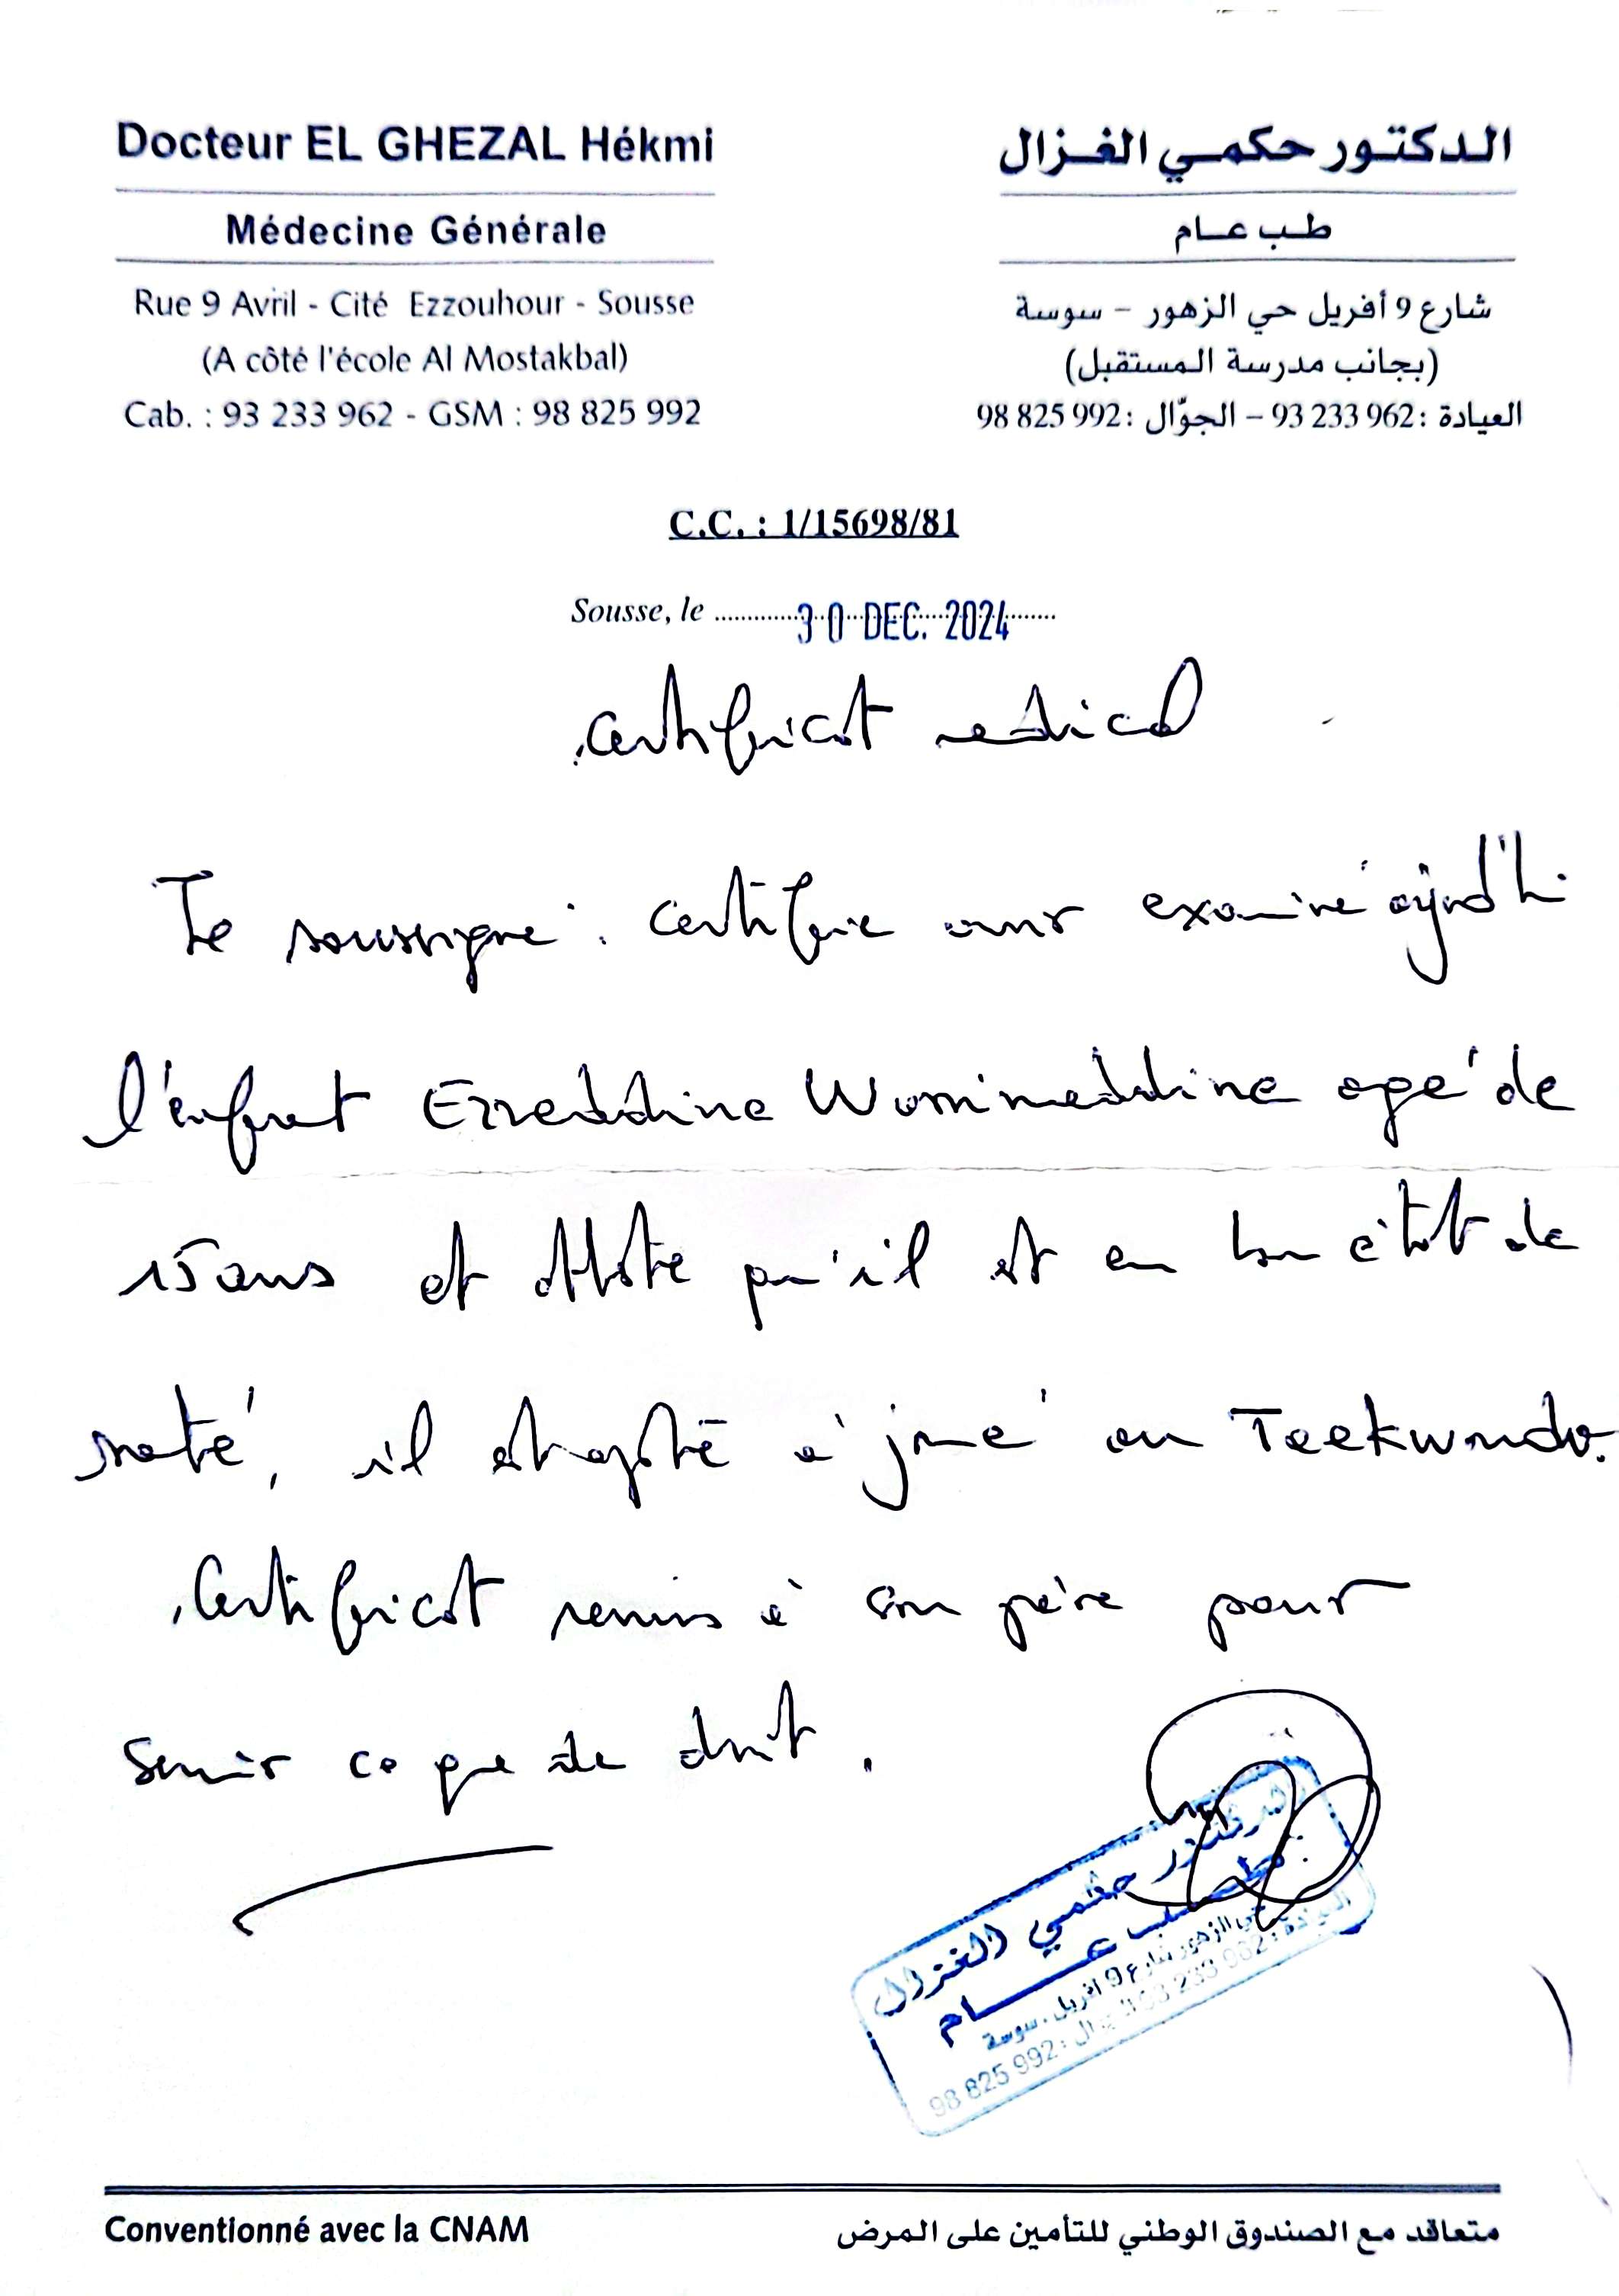 Docteur EL GHEZAL Hékmi
Médecine Générale
Rue 9 Avril - Cité Ezzouhour - Sousse
(A côté l'école Al Mostakbal)
Cab. : 93 233 962 - GSM : 98 825 992
الدكتور حكمي الغزال
طب عام
شارع 9 أفريل حي الزهور - سوسة
(بجانب مدرسة المستقبل)
العيادة : 93 233 962 - الجوّال : 98 825 992
C.C. : 1/15698/81
Sousse, le 30 DEC. 2024
certificat medical
Je soussigné : certifie avoir examiné aujourd'hui
l'enfant Ezzeddine age de
15 ans et atteste qu'il est en bon état de
santé, il est apte à joué au Taekwondo.
Certificat remis à son père pour
servir ce que de droit.
الدكتور حكمي الغزال
طب عام
حي الزهور شارع 9 افريل . سوسة
العيادة : 93 233 962 الجوال : 98 825 992
Conventionné avec la CNAM
متعاقد مع الصندوق الوطني للتأمين على المرض